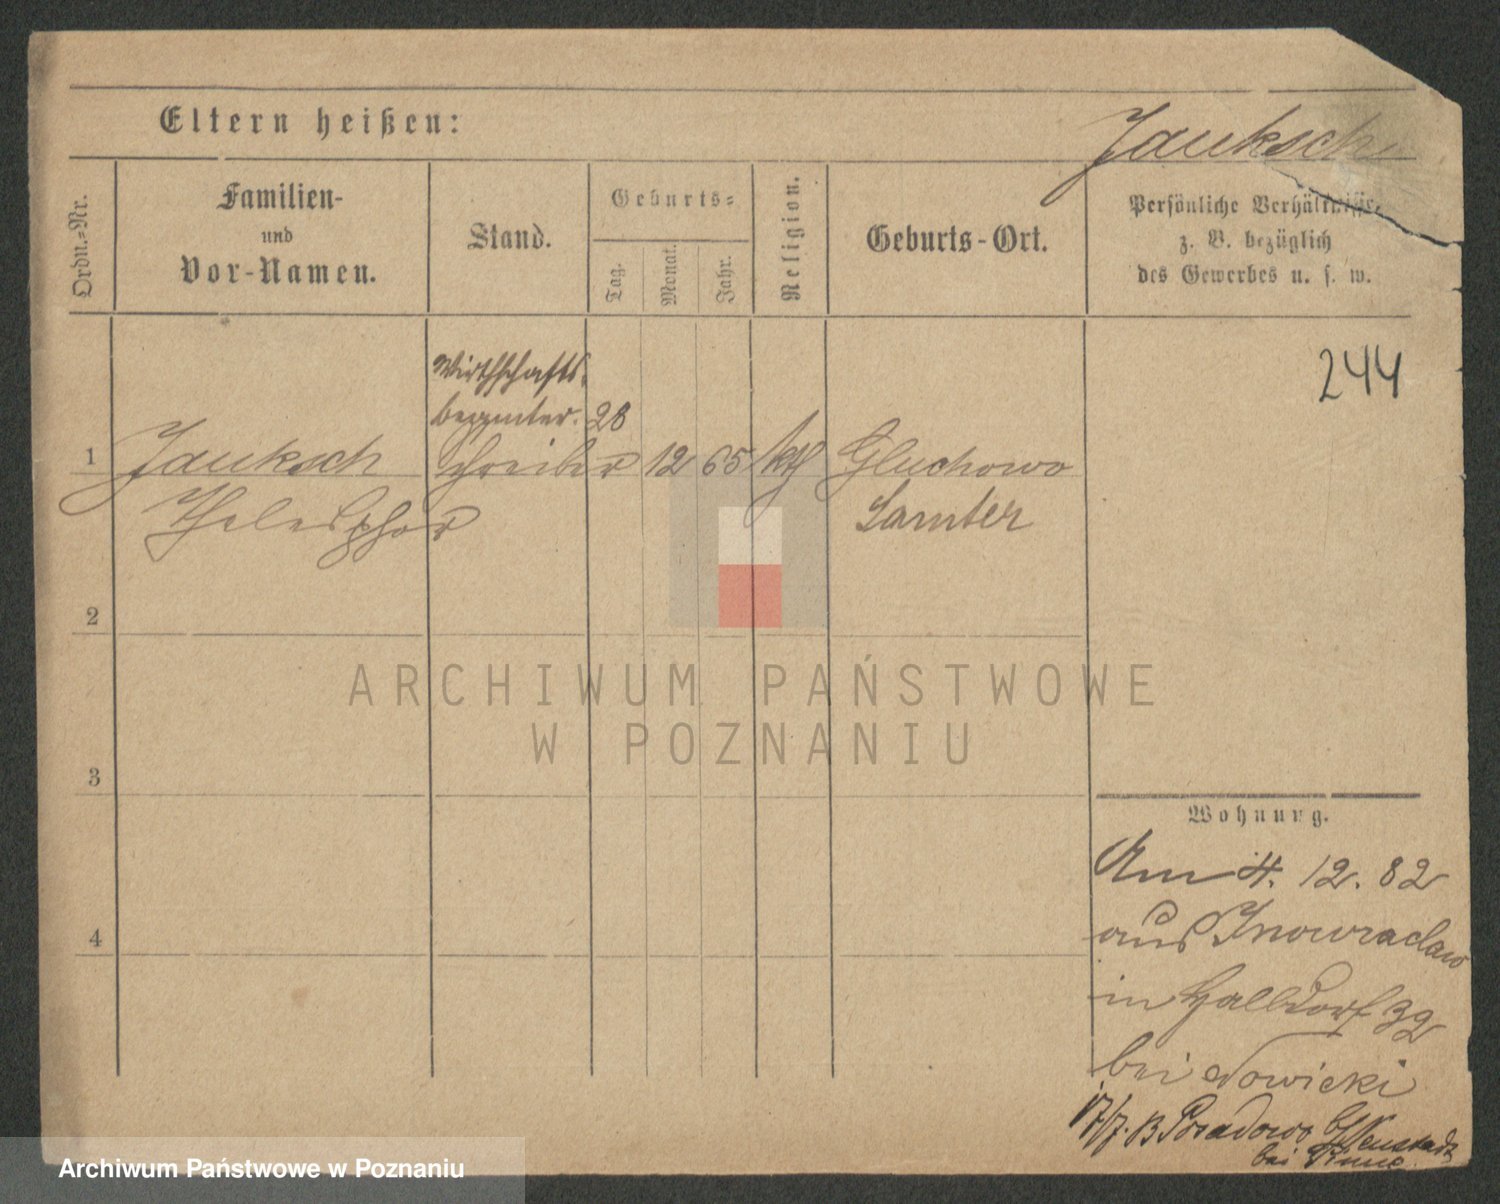 Eltern heißen:
Jauksch
Ordn.-Nr.
Familien-
und
Vor-Namen.
Stand.
Geburts-
Tag.
Monat.
Jahr.
Religion.
Geburts-Ort.
Persönliche Verhältnisse,
z. B. bezüglich
des Gewerbes u. s. w.
244
Wirthschafts-
beamter. 28
1 Jauksch Schreiber 12 65 kth Gluchowo
Thelesphor Samter
2
3
4
ARCHIWUM PAŃSTWOWE
W POZNANIU
Wohnung.
Am 4. 12. 82
aus Inowraclaw
in Halldorf 39
bei Nowicki
17/7. 13 Posadowo Neustadt
bei Pinne
Archiwum Państwowe w Poznaniu